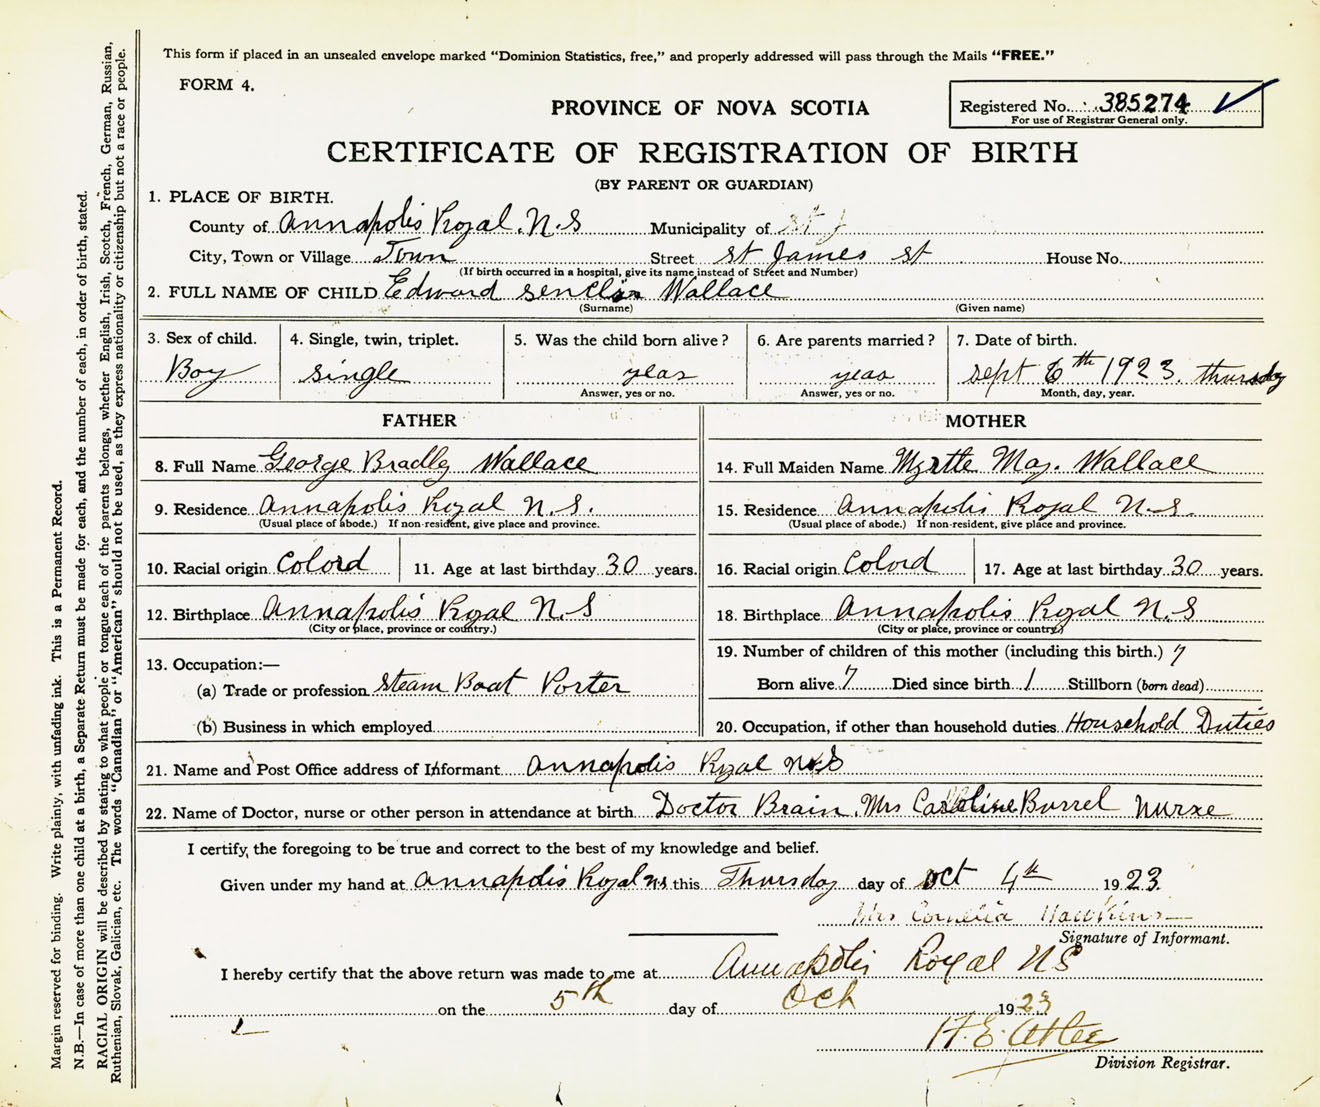 This form if placed in an unsealed envelope marked "Dominion Statistics, free," and properly addressed will pass through the Mails "FREE."
FORM 4.
PROVINCE OF NOVA SCOTIA
Registered No. 385274 ✓
For use of Registrar General only.
CERTIFICATE OF REGISTRATION OF BIRTH
(BY PARENT OR GUARDIAN)
1. PLACE OF BIRTH.
County of Annapolis Royal. N.S Municipality of St J
City, Town or Village Town Street St James St House No.
(If birth occurred in a hospital, give its name instead of Street and Number)
2. FULL NAME OF CHILD Edward Wallace
(Surname) (Given name)
3. Sex of child. 4. Single, twin, triplet. 5. Was the child born alive? 6. Are parents married? 7. Date of birth.
Boy single yeas yeas sept 6th 1923. thursday
Answer, yes or no. Answer, yes or no. Month, day, year.
FATHER MOTHER
8. Full Name George Bradly Wallace 14. Full Maiden Name Myrtle May. Wallace
9. Residence Annapolis Royal N.S. 15. Residence Annapolis Royal N.S.
(Usual place of abode.) If non-resident, give place and province. (Usual place of abode.) If non-resident, give place and province.
10. Racial origin Colord 11. Age at last birthday 30 years. 16. Racial origin Colord 17. Age at last birthday 30 years.
12. Birthplace Annapolis Royal N.S 18. Birthplace Annapolis Royal N.S
(City or place, province or country.) (City or place, province or country.)
13. Occupation:— 19. Number of children of this mother (including this birth.) 7
(a) Trade or profession Steam Boat Porter Born alive 7 Died since birth 1 Stillborn (born dead)
(b) Business in which employed 20. Occupation, if other than household duties Household Duties
21. Name and Post Office address of Informant Annapolis Royal N.S
22. Name of Doctor, nurse or other person in attendance at birth Doctor Brain. Mrs Caroline Burrel Nurse
I certify, the foregoing to be true and correct to the best of my knowledge and belief.
Given under my hand at Annapolis Royal N.S this Thursday day of Oct 4th 1923
Mrs Cornelia Hawkins
Signature of Informant.
I hereby certify that the above return was made to me at Annapolis Royal NS
on the 5th day of Oct 1923
H. E. Atlee
Division Registrar.
Margin reserved for binding. Write plainly, with unfading ink. This is a Permanent Record.
N.B.—In case of more than one child at a birth, a Separate Return must be made for each, and the number of each, in order of birth, stated.
RACIAL ORIGIN will be described by stating to what people or tongue each of the parents belongs, whether English, Irish, Scotch, French, German, Russian,
Ruthenian, Slovak, Galician, etc. The words "Canadian" or "American" should not be used, as they express nationality or citizenship but not a race or people.